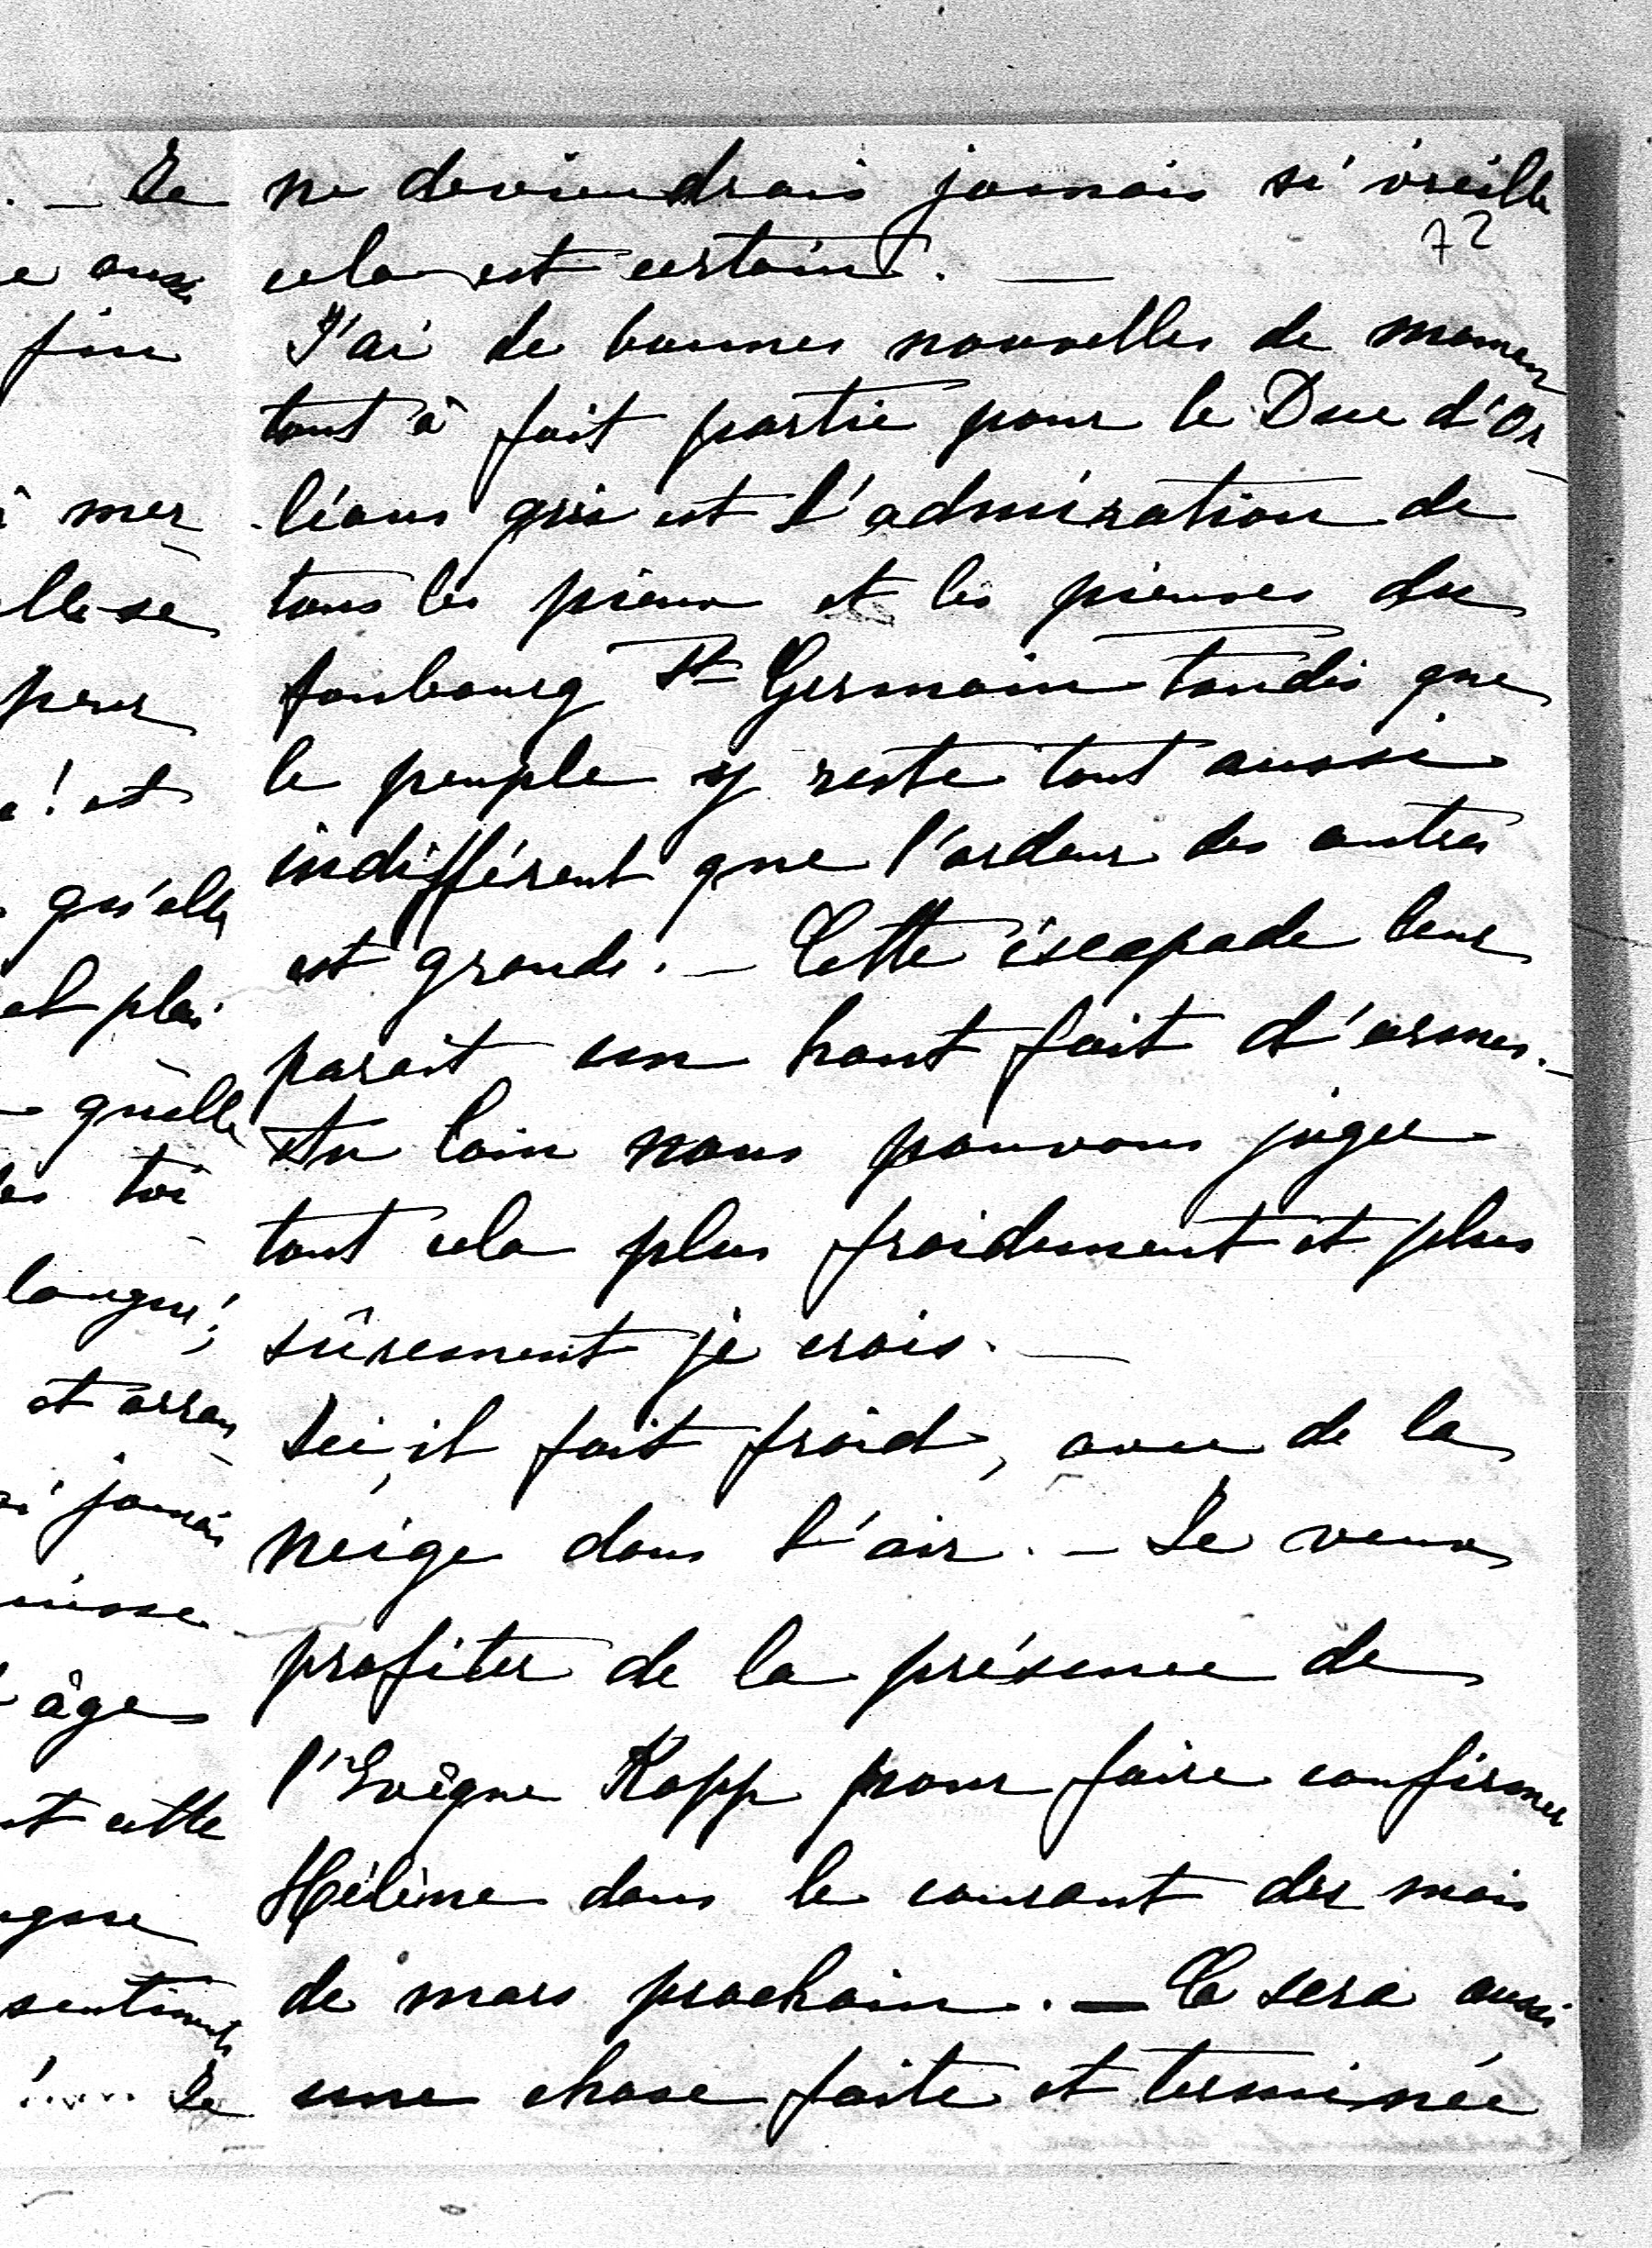 ne deviendrais jamais si vieille
72
cela est certain. —
J'ai de bonnes nouvelles de maman
tout à fait partie pour le Duc d'Or-
léans qui est l'admiration de
tous les pieux et les pieuses du
faubourg St Germain tandis que
le peuple y reste tout aussi
indifférent que l'ardeur des autres
est grande. — Cette escapade leur
parait un haut fait d'armes. —
Au loin nous pouvons juger
tout cela plus froidement et plus
sûrement je crois. —
Ici il fait froid, avec de la
neige dans l'air. — Je veux
profiter de la présence de
l'Evêque Kopp pour faire confirmer
Hélène dans le courant du mois
de mars prochain. — Ce sera aussi
une chose faite et terminée
. — Je
e aussi
fin
mer
elle se
peur
! et
qu'elle
et plai
— qu'elle
toi
langue!
et arran-
jamais
âge
et cette
sentiments
Je